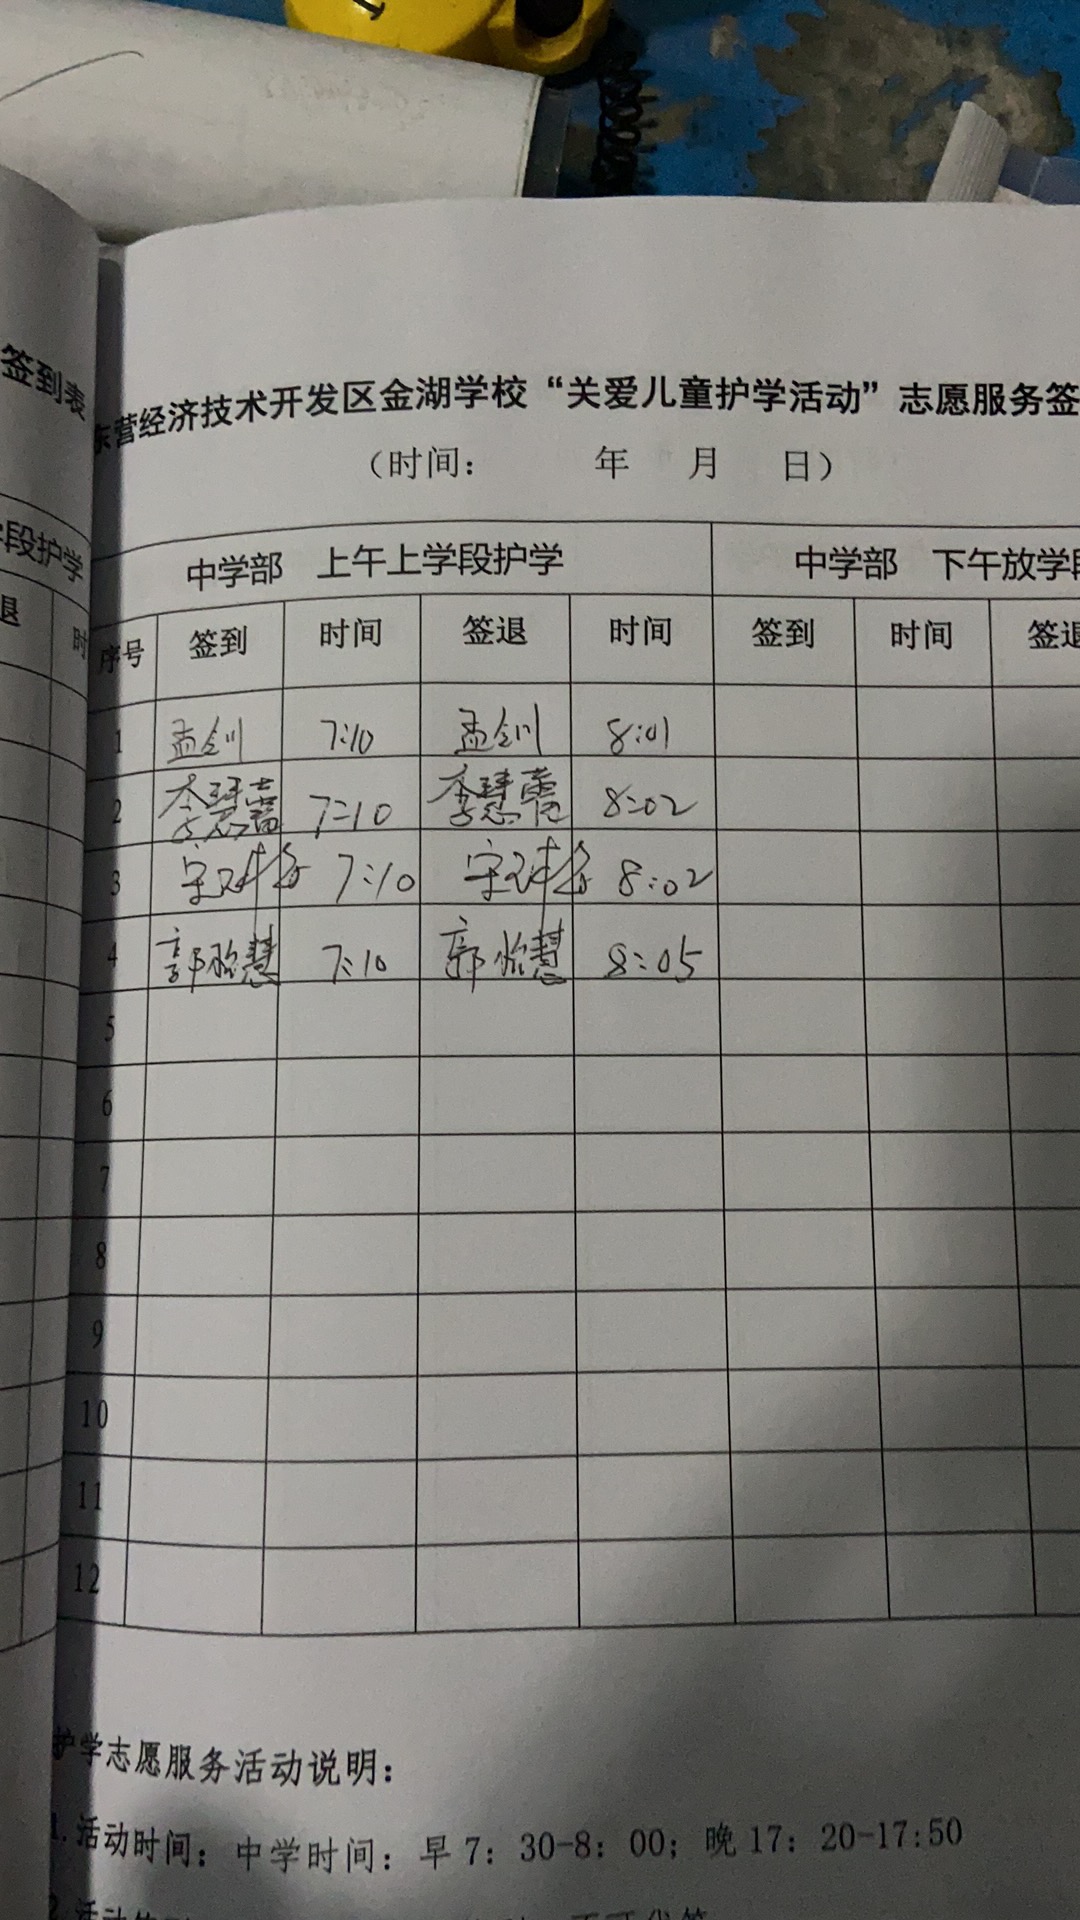 签到表
字段护学
退 时
东营经济技术开发区金湖学校“关爱儿童护学活动”志愿服务签
(时间: 年 月 日)
中学部 上午上学段护学 中学部 下午放学段
序号 签到 时间 签退 时间 签到 时间 签退
1 孟剑 7:10 孟剑 8:01
2 李慧蕾 7:10 李慧蕾 8:02
3 7:10 8:02
4 郭怡慧 7:10 郭怡慧 8:05
5
6
7
8
9
10
11
12
护学志愿服务活动说明:
1.活动时间:中学时间:早7:30-8:00;晚17:20-17:50
2.活动